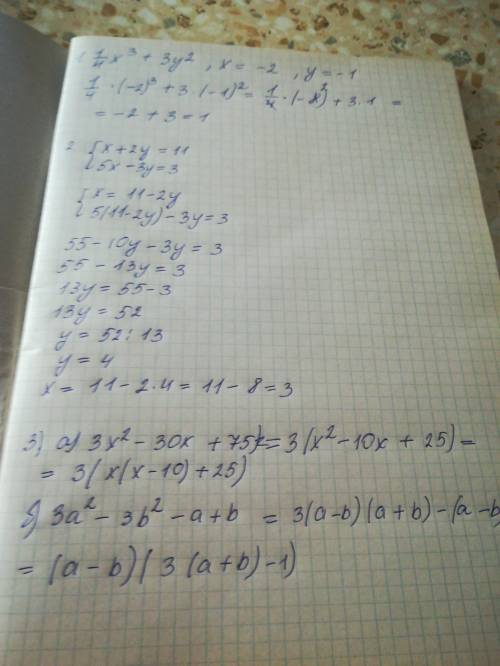 1. 1/4 x³ + 3y², x = -2, y = -1
1/4 · (-2)³ + 3 · (-1)² = 1/4 · (-8²) + 3·1 =
= -2 + 3 = 1
2. { x + 2y = 11
{ 5x - 3y = 3
{ x = 11 - 2y
{ 5(11-2y) - 3y = 3
55 - 10y - 3y = 3
55 - 13y = 3
13y = 55 - 3
13y = 52
y = 52 : 13
y = 4
x = 11 - 2·4 = 11 - 8 = 3
3) а) 3x² - 30x + 75 = 3(x² - 10x + 25) =
= 3(x(x-10) + 25)
б) 3a² - 3b² - a + b = 3(a-b)(a+b) - (a-b)
= (a-b)(3(a+b)-1)